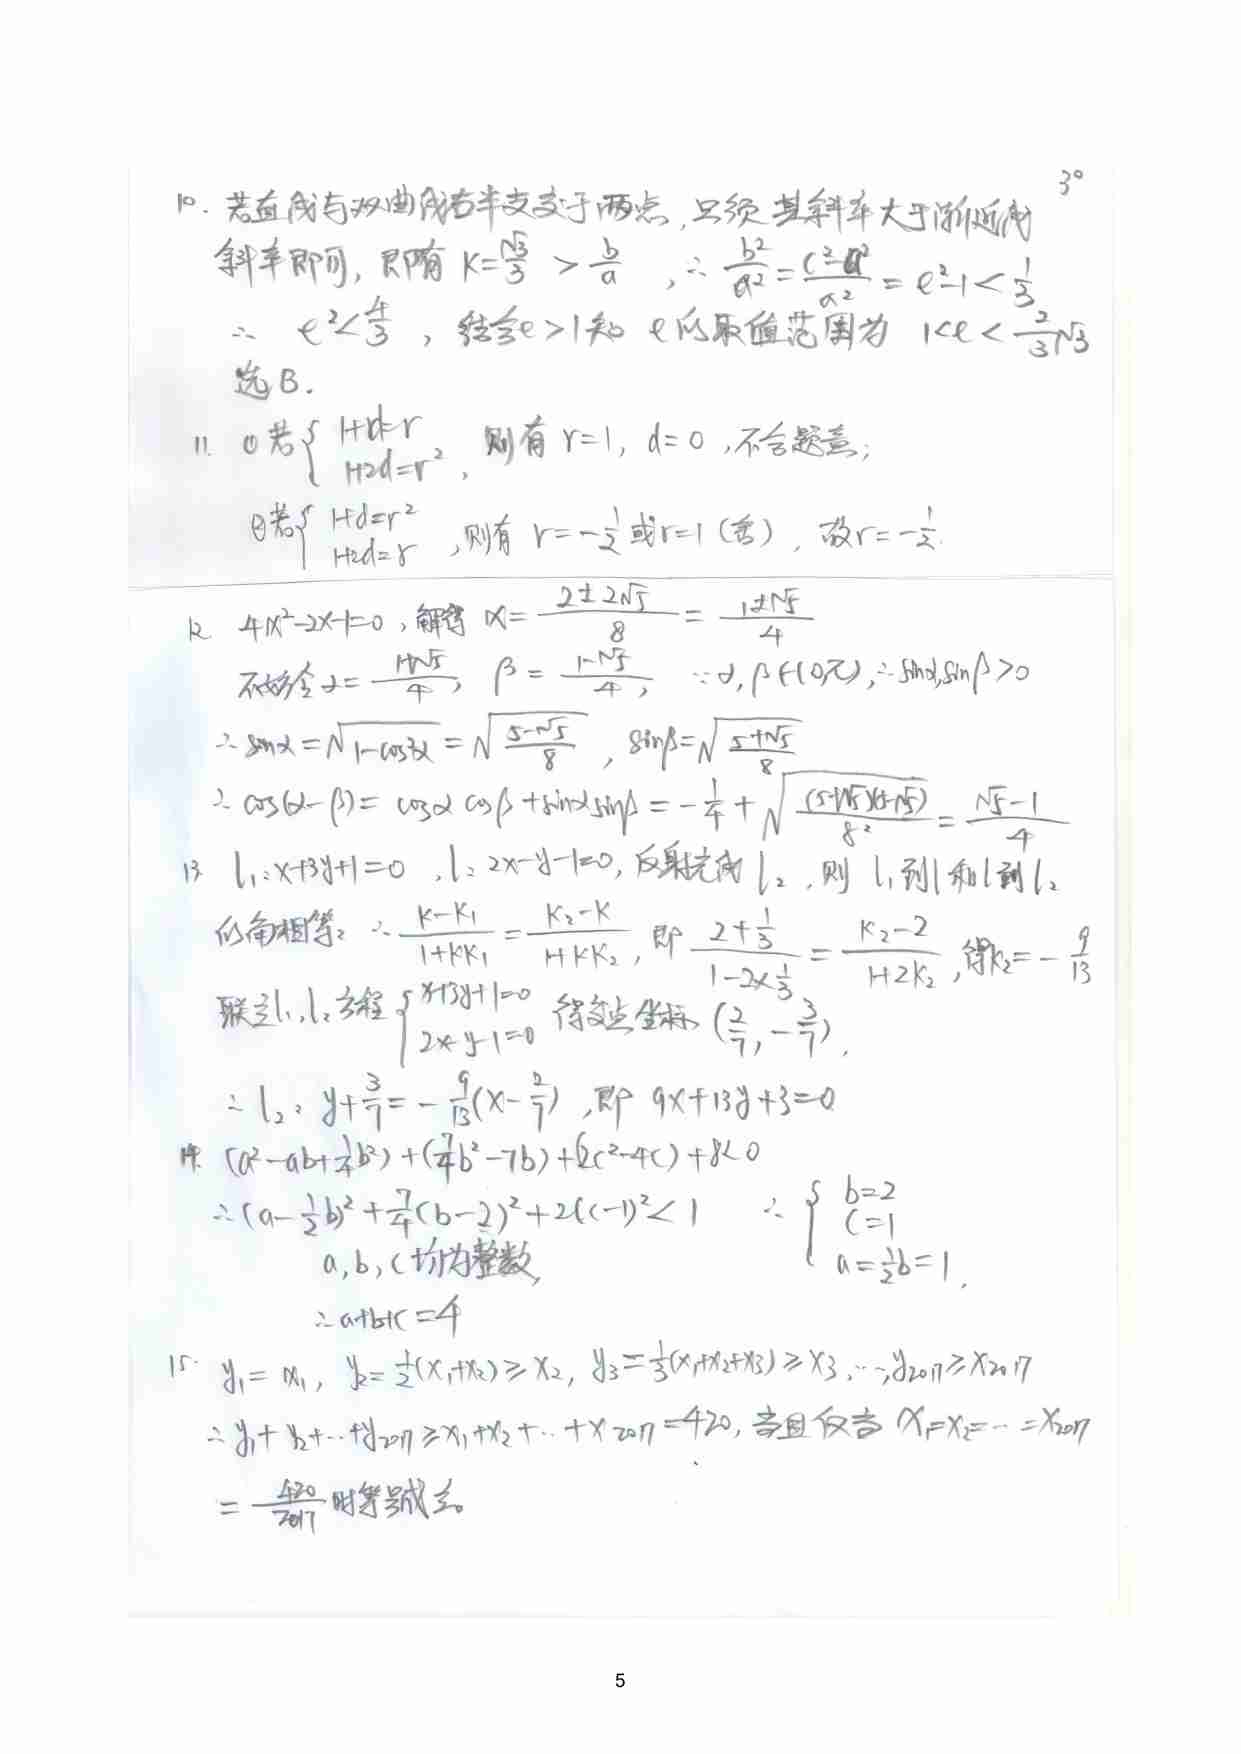 3°
10. 若直线与双曲线右半支交于两点,只须其斜率大于渐近线
斜率即可,即有 K=√3/3 > b/a ,∴ b²/a² = (c²-a²)/a² = e²-1 < 1/3
∴ e²<4/3 , 结合e>1知 e的取值范围为 1<e<2/3√3
选B.
11. ①若{ 1+d=r
1+2d=r² , 则有 r=1, d=0 ,不合题意;
②若{ 1+d=r²
1+2d=r ,则有 r=-1/2或r=1(舍), 故r=-1/2.
12. 4x²-2x-1=0 ,解得 x= (2±2√5)/8 = (1±√5)/4
不妨令α= (1+√5)/4, β= (1-√5)/4, ∵α,β∈(0,π),∴sinα,sinβ>0
∴ sinα=√(1-cos²α) = √((5-√5)/8) , sinβ=√((5+√5)/8)
∴ cos(α-β)= cosα cosβ+sinα sinβ = -1/4 + √((5+√5)(5-√5)/8²) = (√5-1)/4
13. l₁:x+3y+1=0 ,l: 2x-y-1=0,反射光线l₂ ,则 l₁到l和l到l₂
的角相等. ∴ (K-K₁)/(1+KK₁) = (K₂-K)/(1+KK₂), 即 (2+1/3)/(1-2×1/3) = (K₂-2)/(1+2K₂) ,得k₂=-9/13
联立l₁,l₂方程{ x+3y+1=0
2x-y-1=0 得交点坐标 (2/7, -3/7),
∴ l₂: y+3/7=-9/13(x-2/7) ,即 9x+13y+3=0
14. (a²-ab+1/4b²)+(7/4b²-7b)+(2c²-4c)+8<0
∴(a-1/2b)²+7/4(b-2)²+2(c-1)²<1 ∴ { b=2
c=1
a,b,c均为整数, a=1/2b=1,
∴a+b+c=4
15. y₁=x₁, y₂=1/2(x₁+x₂)≥x₂, y₃=1/3(x₁+x₂+x₃)≥x₃,…,y₂₀₁₇≥x₂₀₁₇
∴y₁+y₂+…+y₂₀₁₇≥x₁+x₂+…+x₂₀₁₇=420,当且仅当 x₁=x₂=…=x₂₀₁₇
= 420/2017 时等号成立。
5